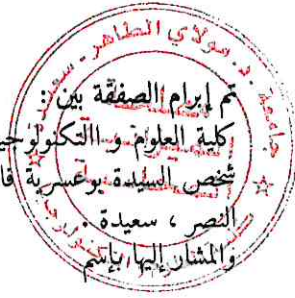 جامعة د. مولاي الطاهر - سعيدة
تم إبرام الصفقة بين :
كلية العلوم و االتكنولوجي
شخص السيدة بوعسرية فا
النصر ، سعيدة .
والمشار إليها بإسم